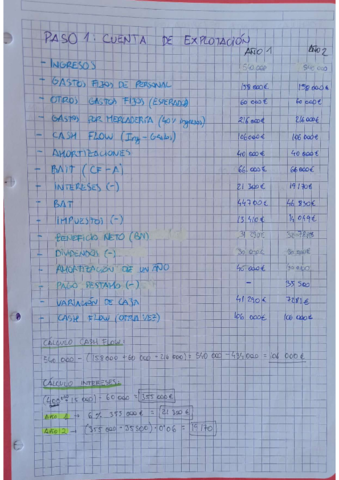 PASO 1. CUENTA DE EXPLOTACIÓN
AÑO 1 AÑO 2
- INGRESOS 540 000 540 000
- GASTOS FIJOS DE PERSONAL 158 000 € 158 000 €
- OTROS GASTOS FIJOS (ESPERADO) 60 000 € 60 000 €
- GASTOS POR MERCADERIA (40% ingresos) 216 000 € 216 000 €
- CASH FLOW (Ing - Gastos) 106 000 € 106 000 €
- AMORTIZACIONES 40 000 € 40 000 €
- BAIT (CF - A) 66 000 € 66 000 €
- INTERESES (-) 21 300 € 19 170 €
- BAT 44 700 € 46 830 €
- IMPUESTOS (-) 13 410 € 14 049 €
- BENEFICIO NETO (BN)
- DIVIDENDOS (-)
- AMORTIZACIÓN DE UN AÑO 40 000 €
- PAGO PRESTAMO (-) - 35 500
- VARIACIÓN DE CAJA
- CASH FLOW (OTRA VEZ) 106 000 € 106 000 €
CÁLCULO CASH FLOW:
540 000 - (158 000 + 60 000 + 216 000) = 540 000 - 434 000 = 106 000 €
CÁLCULO INTERESES:
- 60 000 = 355 000 €
AÑO 1 → 6% 355 000 € = 21 300 €
AÑO 2 → (355 000 - 35 500) · 0'06 = 19 170